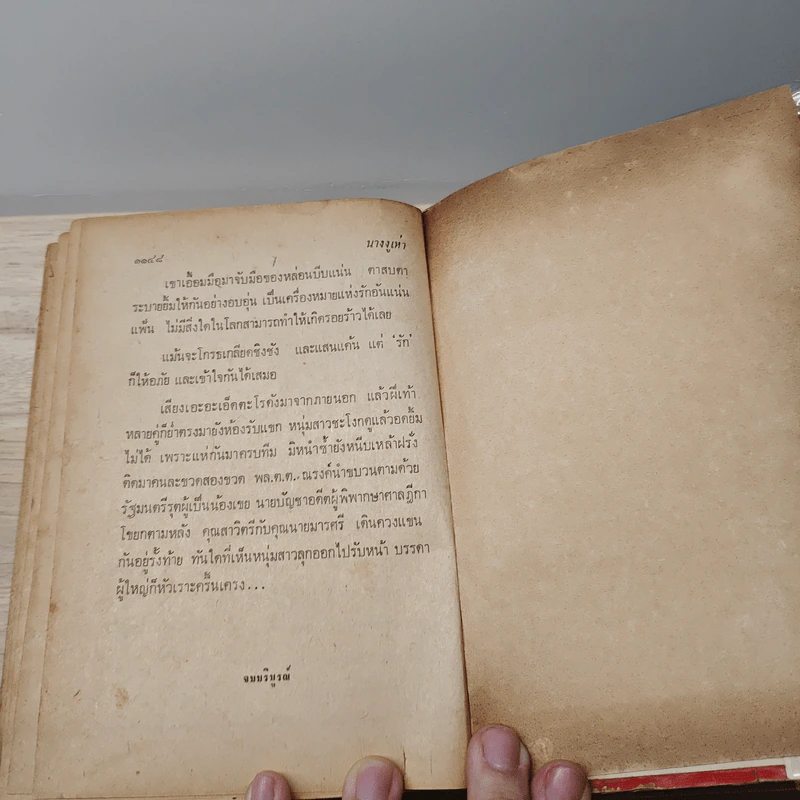 ๑๑๔๘
นางงูเห่า
เขาเอื้อมมือมาจับมือของหล่อนบีบแน่น ตาสบตา
ระบายยิ้มให้กันอย่างอบอุ่น เป็นเครื่องหมายแห่งรักอันแน่น
แฟ้น ไม่มีสิ่งใดในโลกสามารถทำให้เกิดรอยร้าวได้เลย
แม้นจะโกรธเกลียดชิงชัง และแสนแค้น แต่ 'รัก'
ก็ให้อภัย และเข้าใจกันได้เสมอ
เสียงเอะอะเอ็ดตะโรดังมาจากภายนอก แล้วฝีเท้า
หลายคู่ก็ย่ำตรงมายังห้องรับแขก หนุ่มสาวชะโงกดูแล้วอดยิ้ม
ไม่ได้ เพราะแห่กันมาครบทีม มิหนำซ้ำยังหนีบเหล้าฝรั่ง
ติดมาคนละขวดสองขวด พล.ต.ต. ณรงค์นำขบวนตามด้วย
รัฐมนตรีรุตผู้เป็นน้องเขย นายบัญชาอดีตผู้พิพากษาศาลฎีกา
โขยกตามหลัง คุณสาวิตรีกับคุณนายมารศรี เดินควงแขน
กันอยู่รั้งท้าย ทันใดที่เห็นหนุ่มสาวลุกออกไปรับหน้า บรรดา
ผู้ใหญ่ก็หัวเราะครื้นเครง...
จบบริบูรณ์